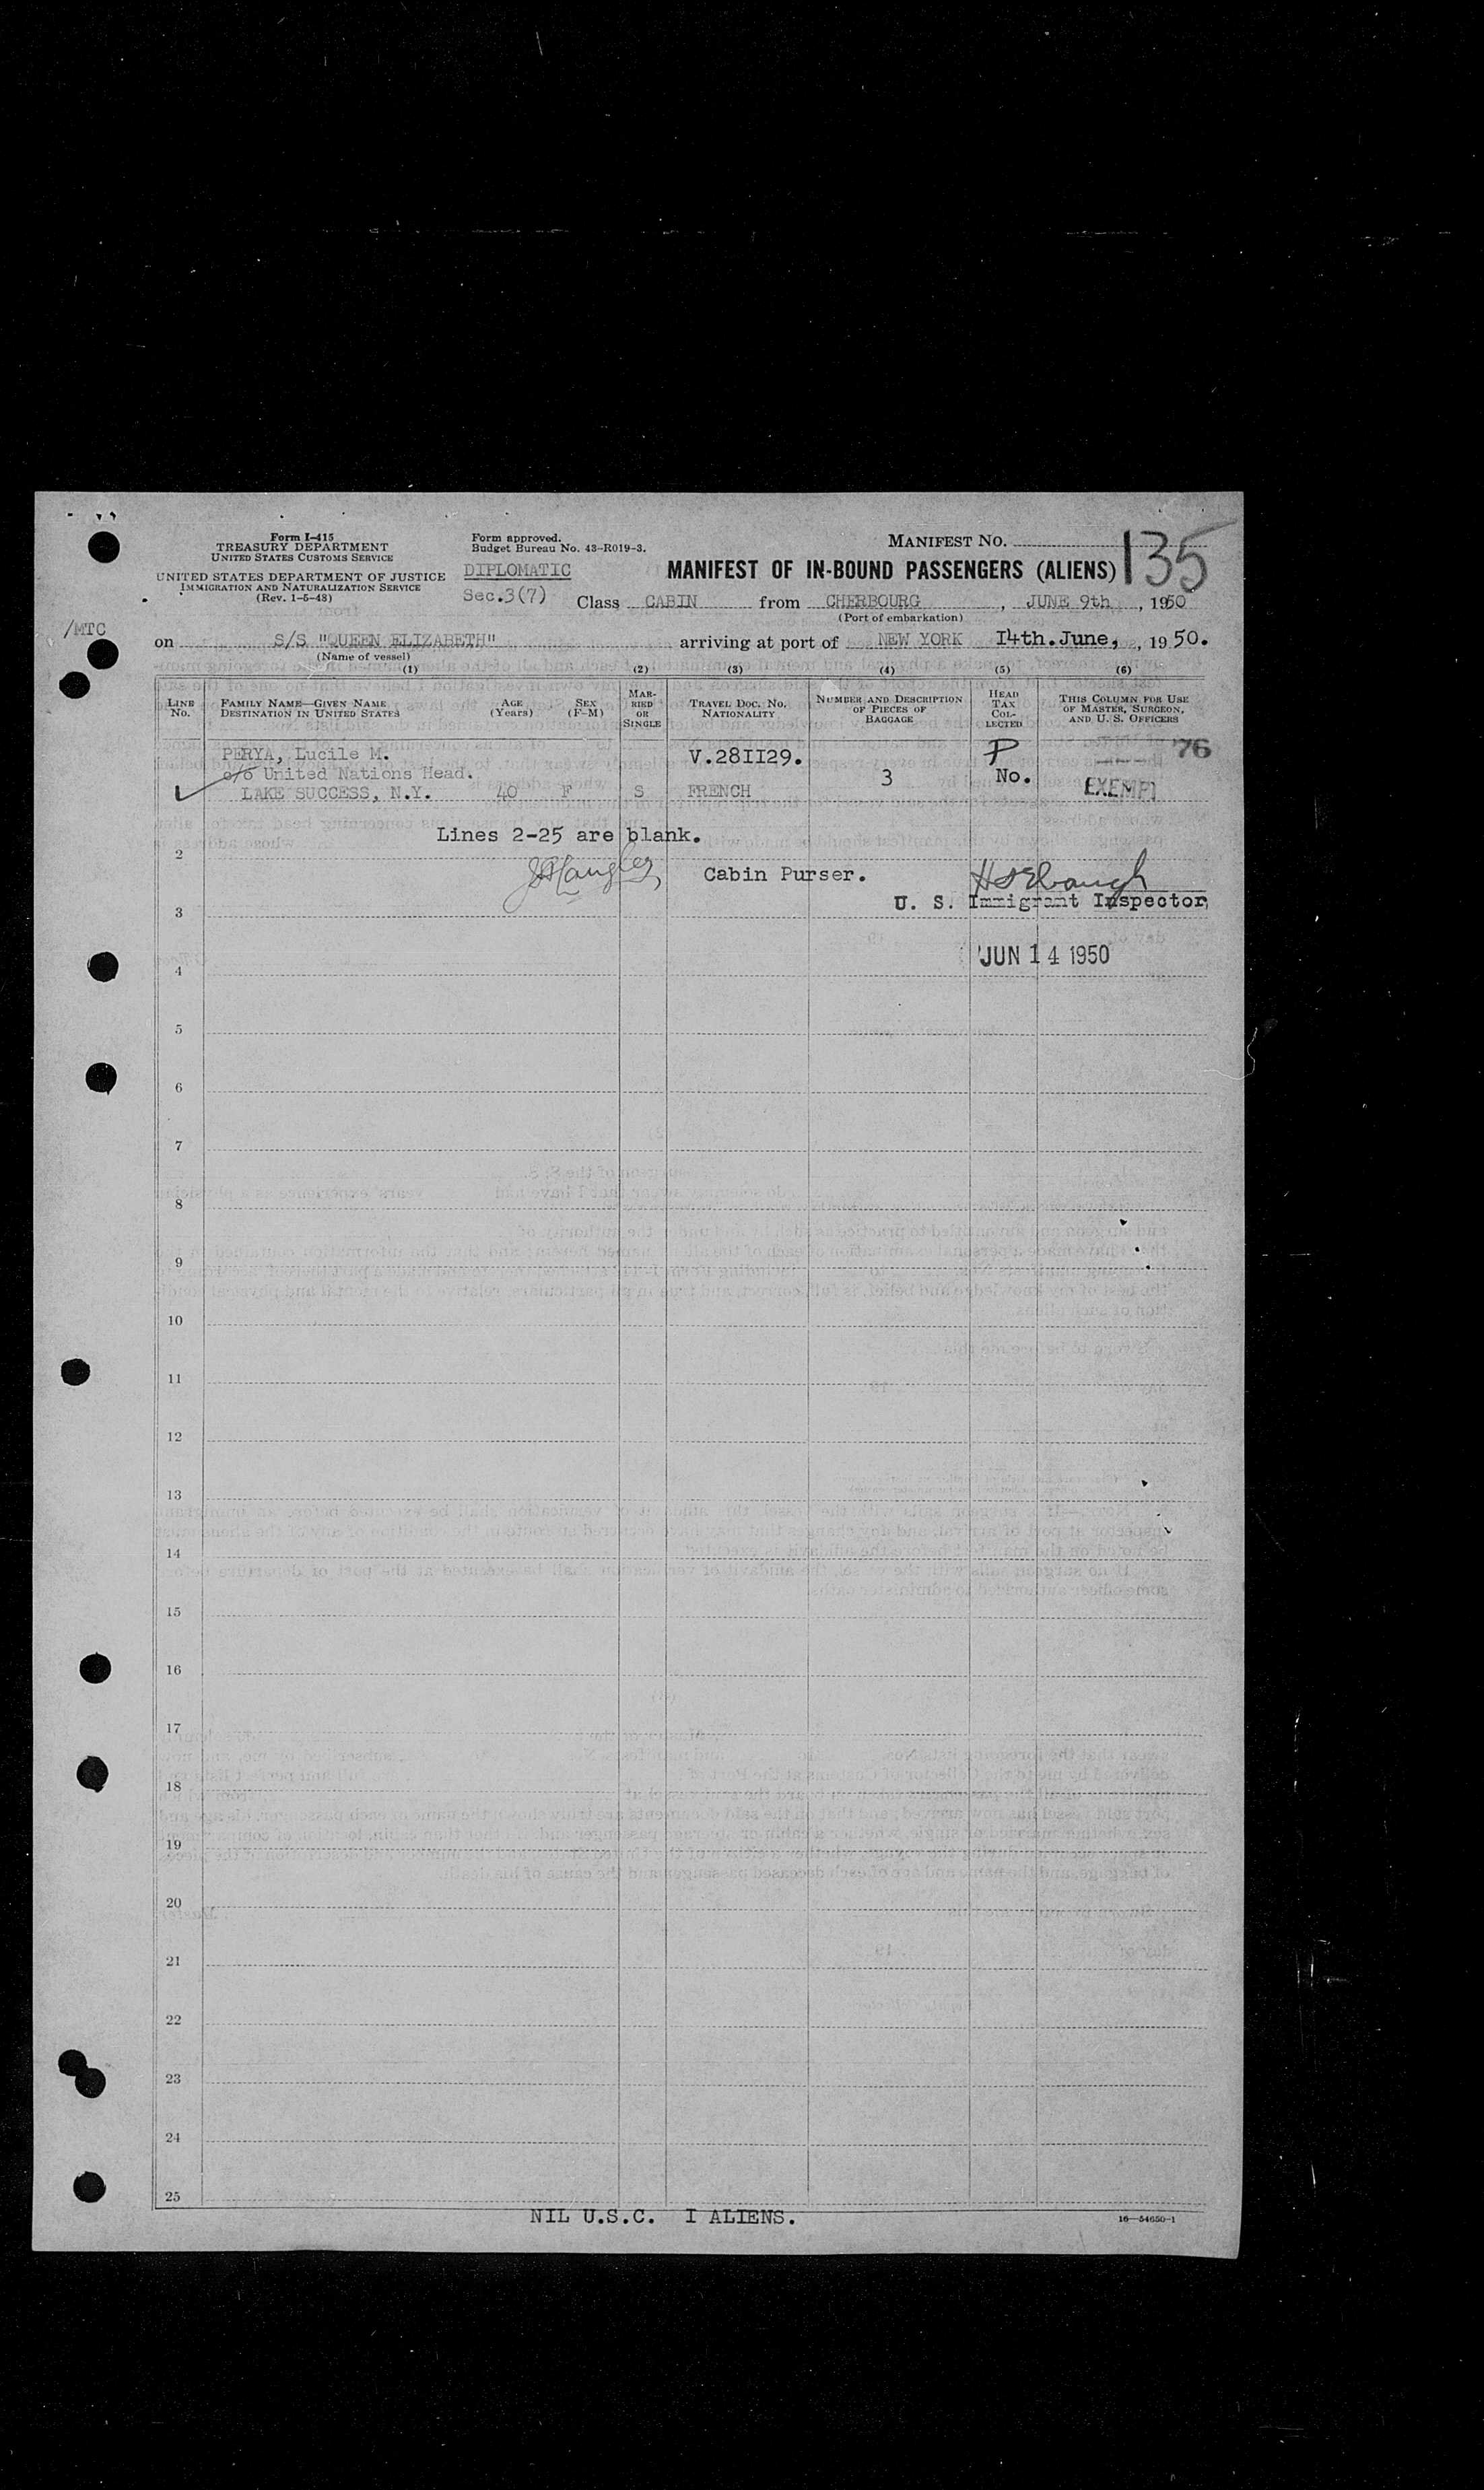 Form I-415
TREASURY DEPARTMENT
UNITED STATES CUSTOMS SERVICE
UNITED STATES DEPARTMENT OF JUSTICE
IMMIGRATION AND NATURALIZATION SERVICE
(Rev. 1-5-48)
Form approved.
Budget Bureau No. 43-R019-3.
DIPLOMATIC
Sec.3(7)
MANIFEST NO.
135
MANIFEST OF IN-BOUND PASSENGERS (ALIENS)
Class CABIN from CHERBOURG, JUNE 9th, 1950
(Port of embarkation)
/MTC
on S/S "QUEEN ELIZABETH" arriving at port of NEW YORK 14th.June, 1950.
(Name of vessel)
(1) (2) (3) (4) (5) (6)
LINE NO. FAMILY NAME—GIVEN NAME DESTINATION IN UNITED STATES AGE (Years) SEX (F-M) MARRIED OR SINGLE TRAVEL DOC. NO. NATIONALITY NUMBER AND DESCRIPTION OF PIECES OF BAGGAGE HEAD TAX COLLECTED THIS COLUMN FOR USE OF MASTER, SURGEON, AND U. S. OFFICERS
PERYA, Lucile M. V.28II29. P 76
c/o United Nations Head. 3 No.
LAKE SUCCESS, N.Y. 40 F S FRENCH EXEMPT
Lines 2-25 are blank.
2
Cabin Purser.
U. S. Immigrant Inspector
3
JUN 14 1950
4
5
6
7
8
9
10
11
12
13
14
15
16
17
18
19
20
21
22
23
24
25
NIL U.S.C. I ALIENS.
16—54650-1